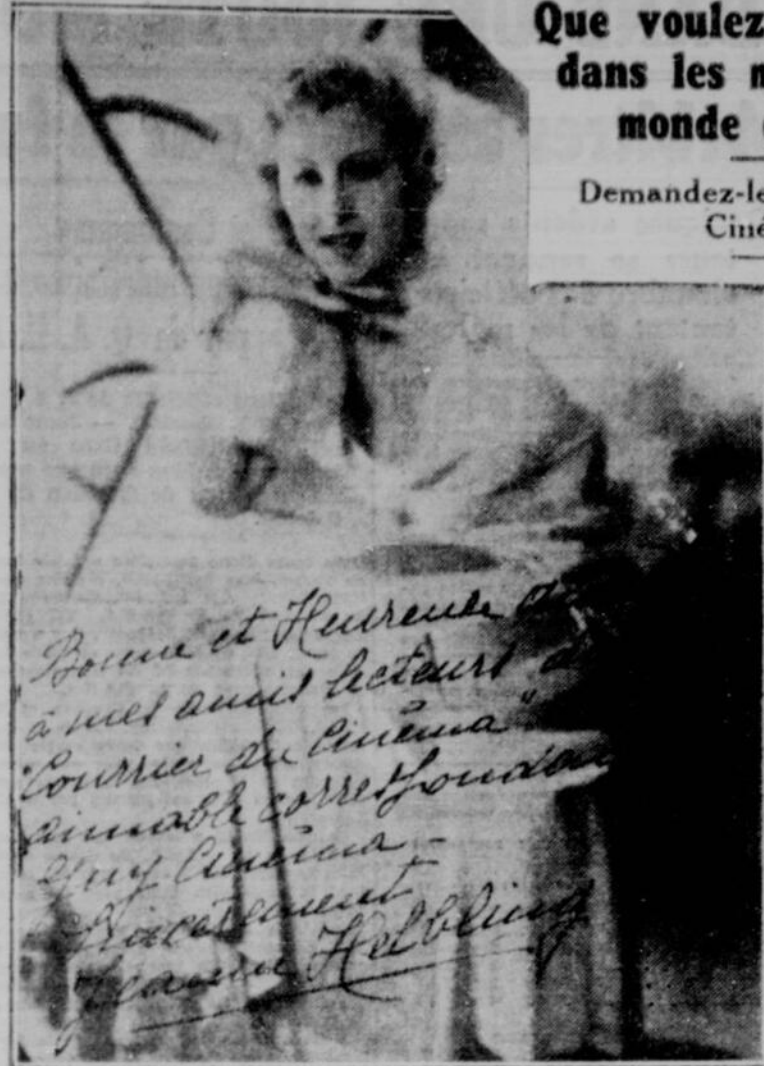 Que voulez
dans les
monde
Demandez-le
Ciné
Bonne et Heureuse
à mes amis lecteurs
"Courrier du Cinéma"
aimable correspondan
Guy Cinéma
Sincèrement
Jeanne Helbling